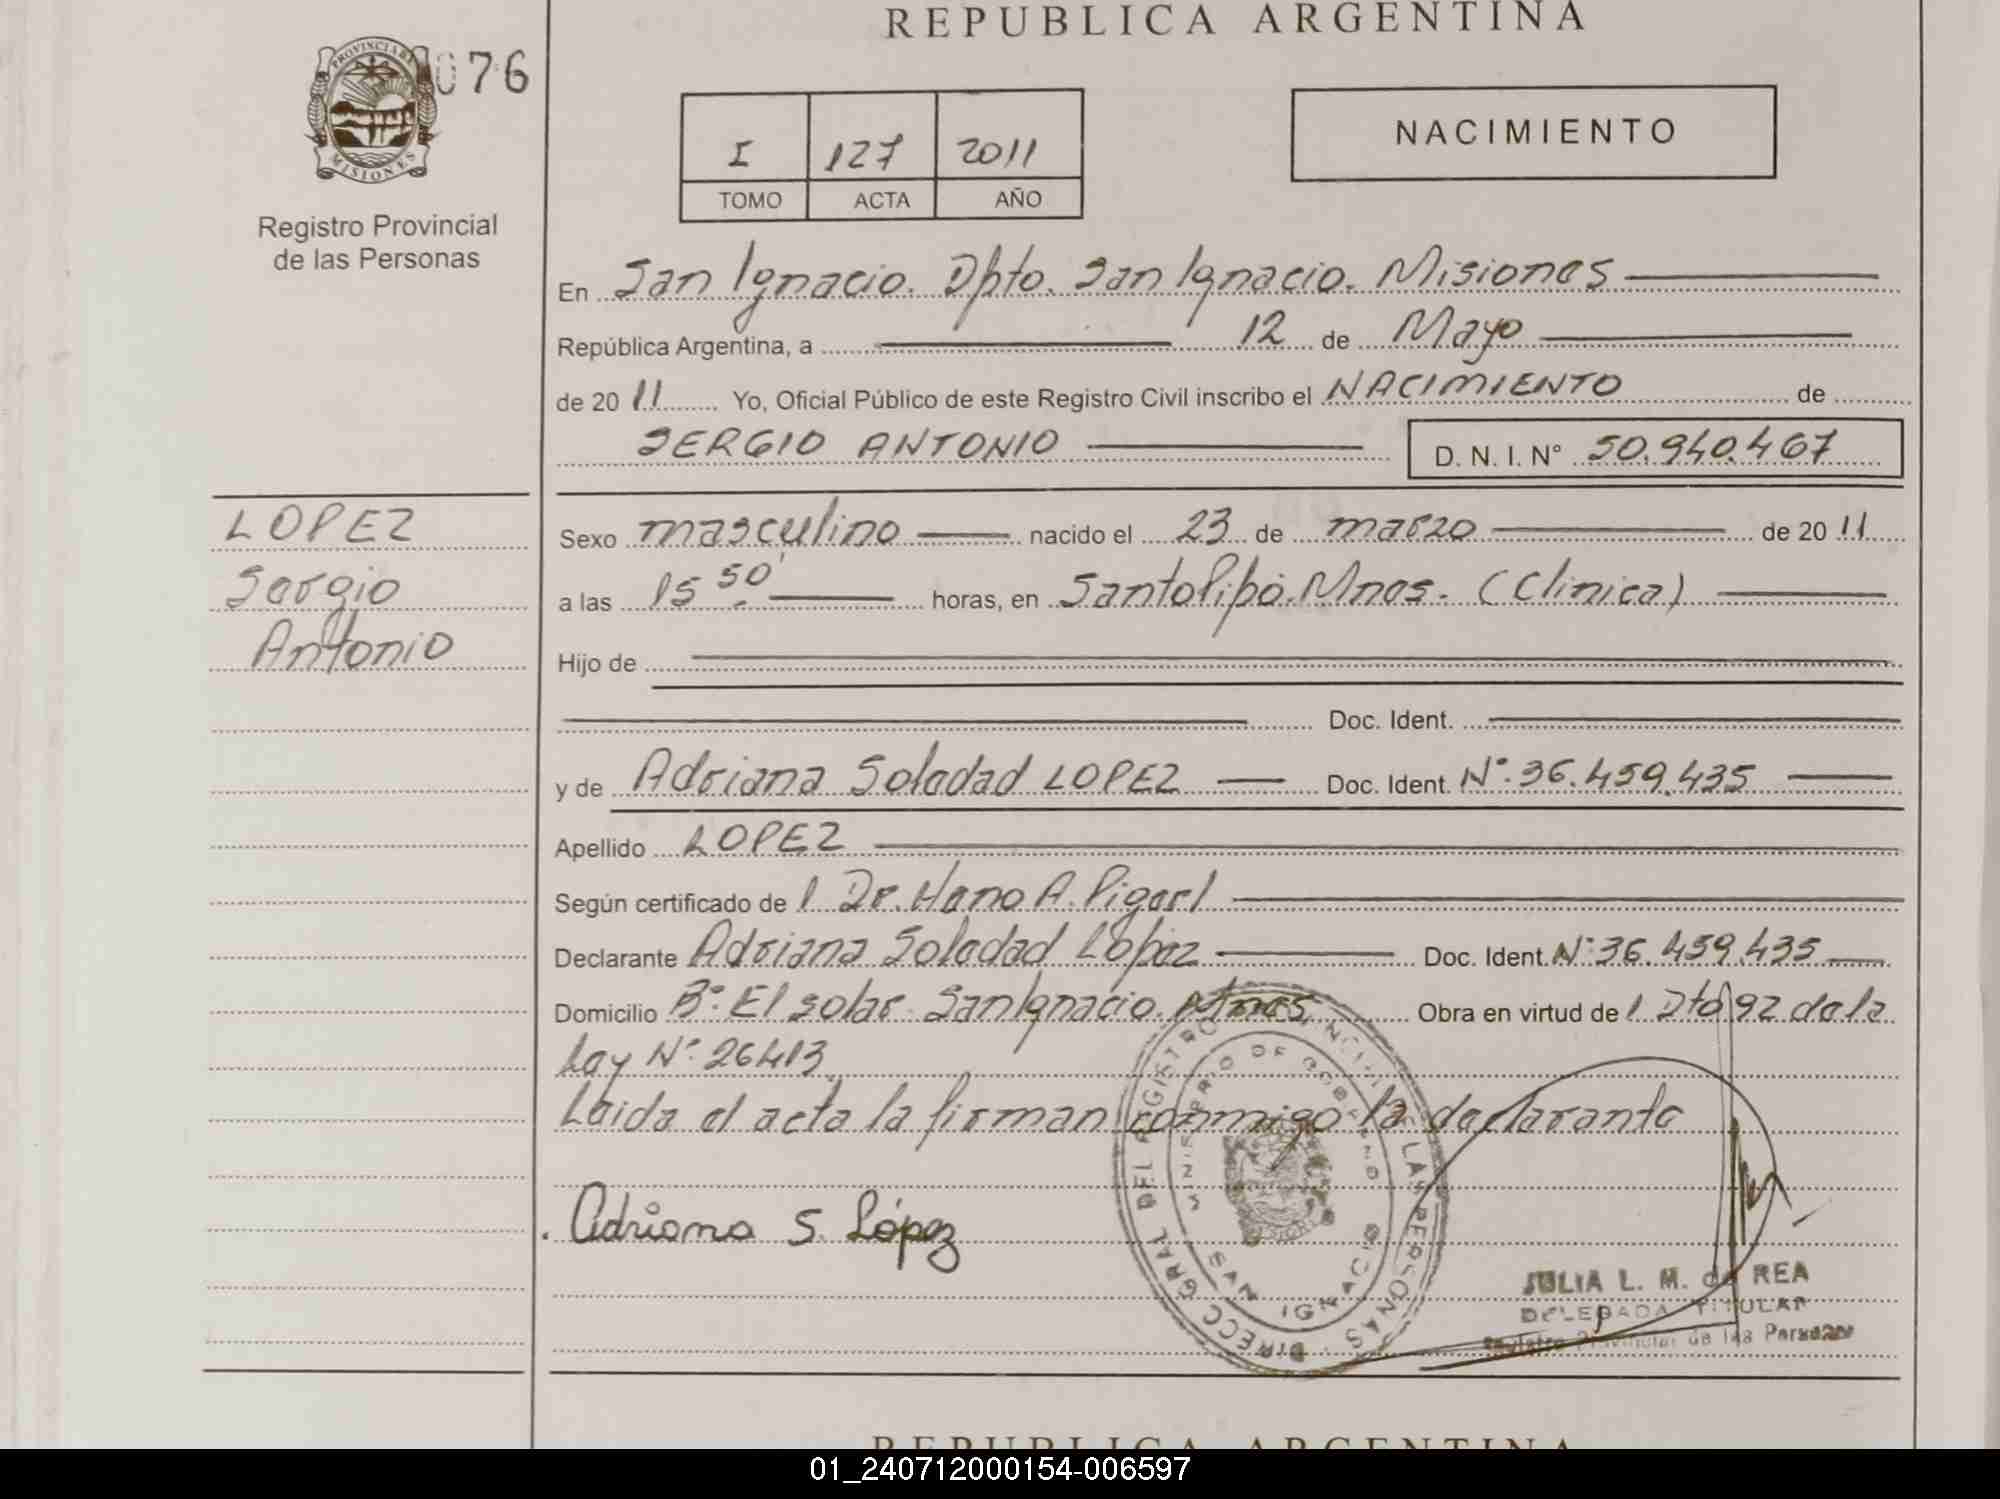 REPUBLICA ARGENTINA
076
PROVINCIA DE MISIONES
Registro Provincial
de las Personas
I 127 2011
TOMO ACTA AÑO
NACIMIENTO
En San Ignacio. Dpto. San Ignacio. Misiones
República Argentina, a 12 de Mayo
de 20 11 Yo, Oficial Público de este Registro Civil inscribo el NACIMIENTO de
SERGIO ANTONIO D. N. I. N° 50.940.467
LOPEZ
Sergio
Antonio
Sexo masculino nacido el 23 de marzo de 20 11
a las 15 50' horas, en Santo Pipó. Mnes. (Clinica)
Hijo de
Doc. Ident.
y de Adriana Soledad LOPEZ Doc. Ident. N°. 36.459.435
Apellido LOPEZ
Según certificado de l Dr. A.
Declarante Adriana Soledad López Doc. Ident. N° 36.459.435
Domicilio B°. El solar. San Ignacio. Mnes. Obra en virtud de l Dto 92 de la
Ley N° 26413.
Leida el acta la firman conmigo la declarante
Adriana S. López
DIRECC GRAL DEL REGISTRO PROVINCIAL DE LAS PERSONAS
MINISTERIO DE GOBIERNO
SAN IGNACIO
JULIA L. M. de REA
DELEGADA TITULAR
Registro Provincial de las Personas
REPUBLICA ARGENTINA
01_240712000154-006597